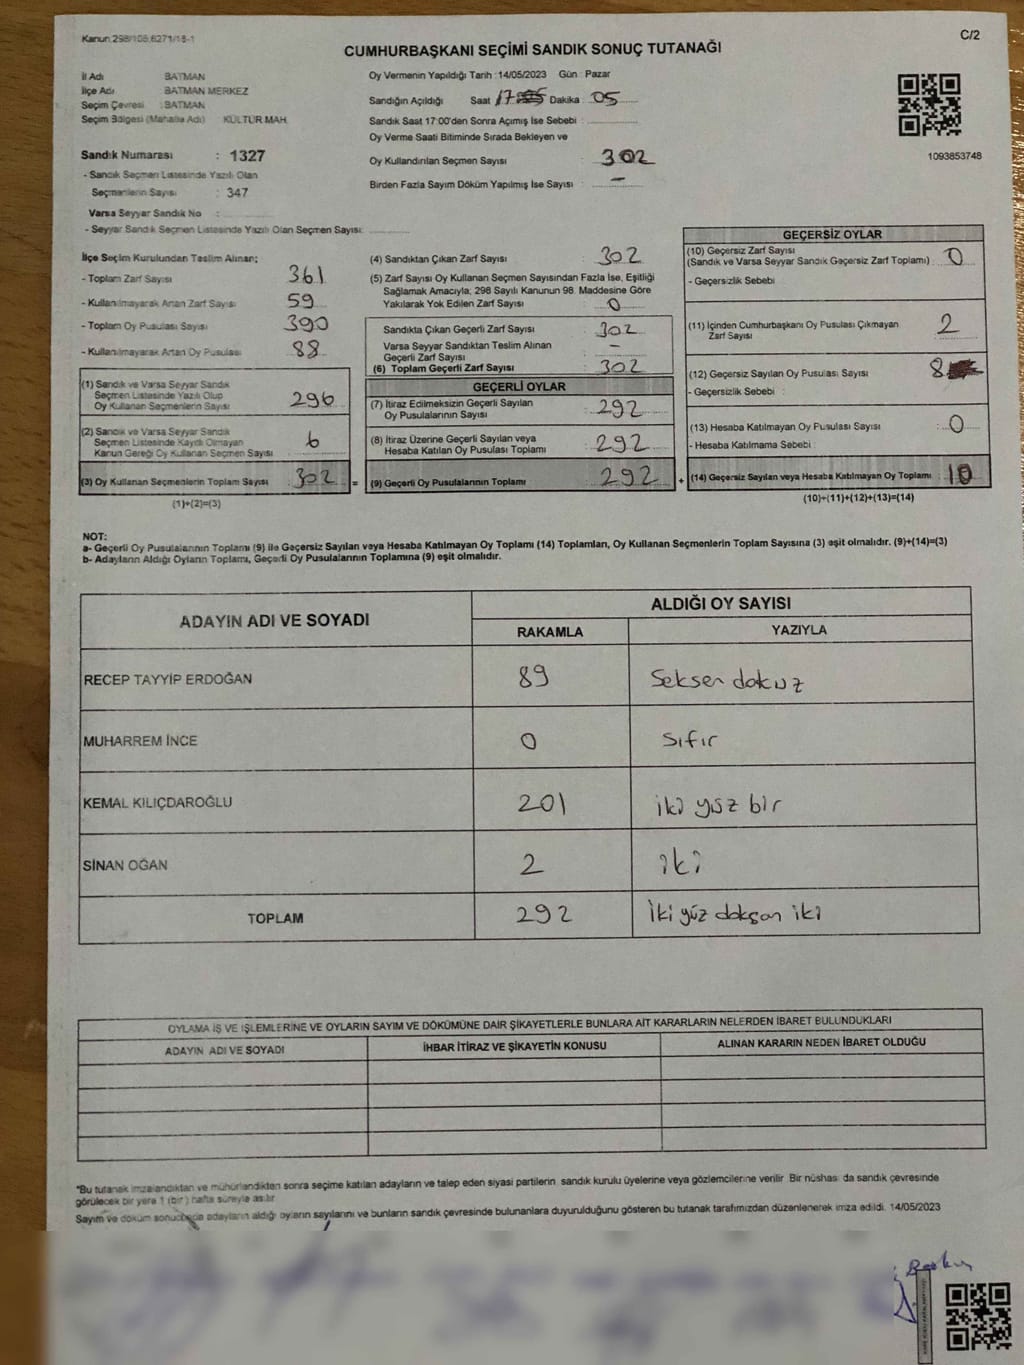 Kanun:298/105,6271/18-1
C/2
CUMHURBAŞKANI SEÇİMİ SANDIK SONUÇ TUTANAĞI
İl Adı BATMAN
İlçe Adı BATMAN MERKEZ
Seçim Çevresi : BATMAN
Seçim Bölgesi (Mahalle Adı) KÜLTÜR MAH.
Oy Vermenin Yapıldığı Tarih :14/05/2023 Gün : Pazar
Sandığın Açıldığı Saat 17 Dakika : 05
Sandık Saat 17:00'den Sonra Açımış İse Sebebi :
Oy Verme Saati Bitiminde Sırada Bekleyen ve
Oy Kullandırılan Seçmen Sayısı : 302
Birden Fazla Sayım Döküm Yapılmış İse Sayısı : –
1093853748
Sandık Numarası : 1327
- Sandık Seçmen Listesinde Yazılı Olan
Seçmenlerin Sayısı : 347
Varsa Seyyar Sandık No :
- Seyyar Sandık Seçmen Listesinde Yazılı Olan Seçmen Sayısı:
İlçe Seçim Kurulundan Teslim Alınan;
- Toplam Zarf Sayısı : 361
- Kullanılmayarak Artan Zarf Sayısı : 59
- Toplam Oy Pusulası Sayısı : 390
- Kullanılmayarak Artan Oy Pusulası : 88
(1) Sandık ve Varsa Seyyar Sandık
Seçmen Listesinde Yazılı Olup
Oy Kullanan Seçmenlerin Sayısı : 296
(2) Sandık ve Varsa Seyyar Sandık
Seçmen Listesinde Kayıtlı Olmayan
Kanun Gereği Oy Kullanan Seçmen Sayısı : 6
(3) Oy Kullanan Seçmenlerin Toplam Sayısı : 302 =
(1)+(2)=(3)
(4) Sandıktan Çıkan Zarf Sayısı : 302
(5) Zarf Sayısı Oy Kullanan Seçmen Sayısından Fazla İse, Eşitliği
Sağlamak Amacıyla; 298 Sayılı Kanunun 98. Maddesine Göre
Yakılarak Yok Edilen Zarf Sayısı : 0
Sandıkta Çıkan Geçerli Zarf Sayısı : 302
Varsa Seyyar Sandıktan Teslim Alınan
Geçerli Zarf Sayısı : –
(6) Toplam Geçerli Zarf Sayısı : 302
GEÇERLİ OYLAR
(7) İtiraz Edilmeksizin Geçerli Sayılan
Oy Pusulalarının Sayısı : 292
(8) İtiraz Üzerine Geçerli Sayılan veya
Hesaba Katılan Oy Pusulası Toplamı : 292
(9) Geçerli Oy Pusulalarının Toplamı : 292 +
GEÇERSİZ OYLAR
(10) Geçersiz Zarf Sayısı
(Sandık ve Varsa Seyyar Sandık Geçersiz Zarf Toplamı) : 0
- Geçersizlik Sebebi
(11) İçinden Cumhurbaşkanı Oy Pusulası Çıkmayan
Zarf Sayısı : 2
(12) Geçersiz Sayılan Oy Pusulası Sayısı : 8
- Geçersizlik Sebebi :
(13) Hesaba Katılmayan Oy Pusulası Sayısı : 0
- Hesaba Katılmama Sebebi :
(14) Geçersiz Sayılan veya Hesaba Katılmayan Oy Toplamı : 10
(10)+(11)+(12)+(13)=(14)
NOT:
a- Geçerli Oy Pusulalarının Toplamı (9) ile Geçersiz Sayılan veya Hesaba Katılmayan Oy Toplamı (14) Toplamları, Oy Kullanan Seçmenlerin Toplam Sayısına (3) eşit olmalıdır. (9)+(14)=(3)
b- Adayların Aldığı Oyların Toplamı, Geçerli Oy Pusulalarının Toplamına (9) eşit olmalıdır.
ADAYIN ADI VE SOYADI
ALDIĞI OY SAYISI
RAKAMLA YAZIYLA
RECEP TAYYİP ERDOĞAN 89 Seksen dokuz
MUHARREM İNCE 0 Sıfır
KEMAL KILIÇDAROĞLU 201 iki yüz bir
SİNAN OĞAN 2 iki
TOPLAM 292 İki yüz doksan iki
OYLAMA İŞ VE İŞLEMLERİNE VE OYLARIN SAYIM VE DÖKÜMÜNE DAİR ŞİKAYETLERLE BUNLARA AİT KARARLARIN NELERDEN İBARET BULUNDUKLARI
ADAYIN ADI VE SOYADI İHBAR İTİRAZ VE ŞİKAYETİN KONUSU ALINAN KARARIN NEDEN İBARET OLDUĞU
*Bu tutanak imzalandıktan ve mühürlendikten sonra seçime katılan adayların ve talep eden siyasi partilerin sandık kurulu üyelerine veya gözlemcilerine verilir. Bir nüshası da sandık çevresinde
görülecek bir yere 1 (bir) hafta süreyle asılır.
Sayım ve döküm sonucunda adayların aldığı oyların sayılarını ve bunların sandık çevresinde bulunanlara duyurulduğunu gösteren bu tutanak tarafımızdan düzenlenerek imza edildi. 14/05/2023